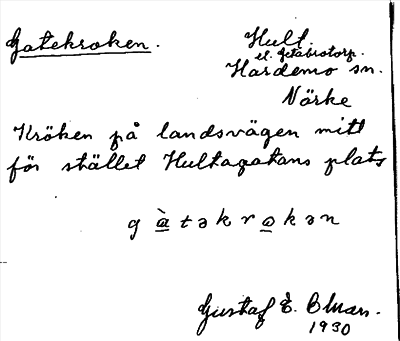 Gatekroken.
Hult.
el. Getabrotorp.
Hardemo sn.
Närke
Kröken på landsvägen mitt
för stället Hultagatans plats
g à t ə k r ω k ə n
Gustaf E. Bman.
1930